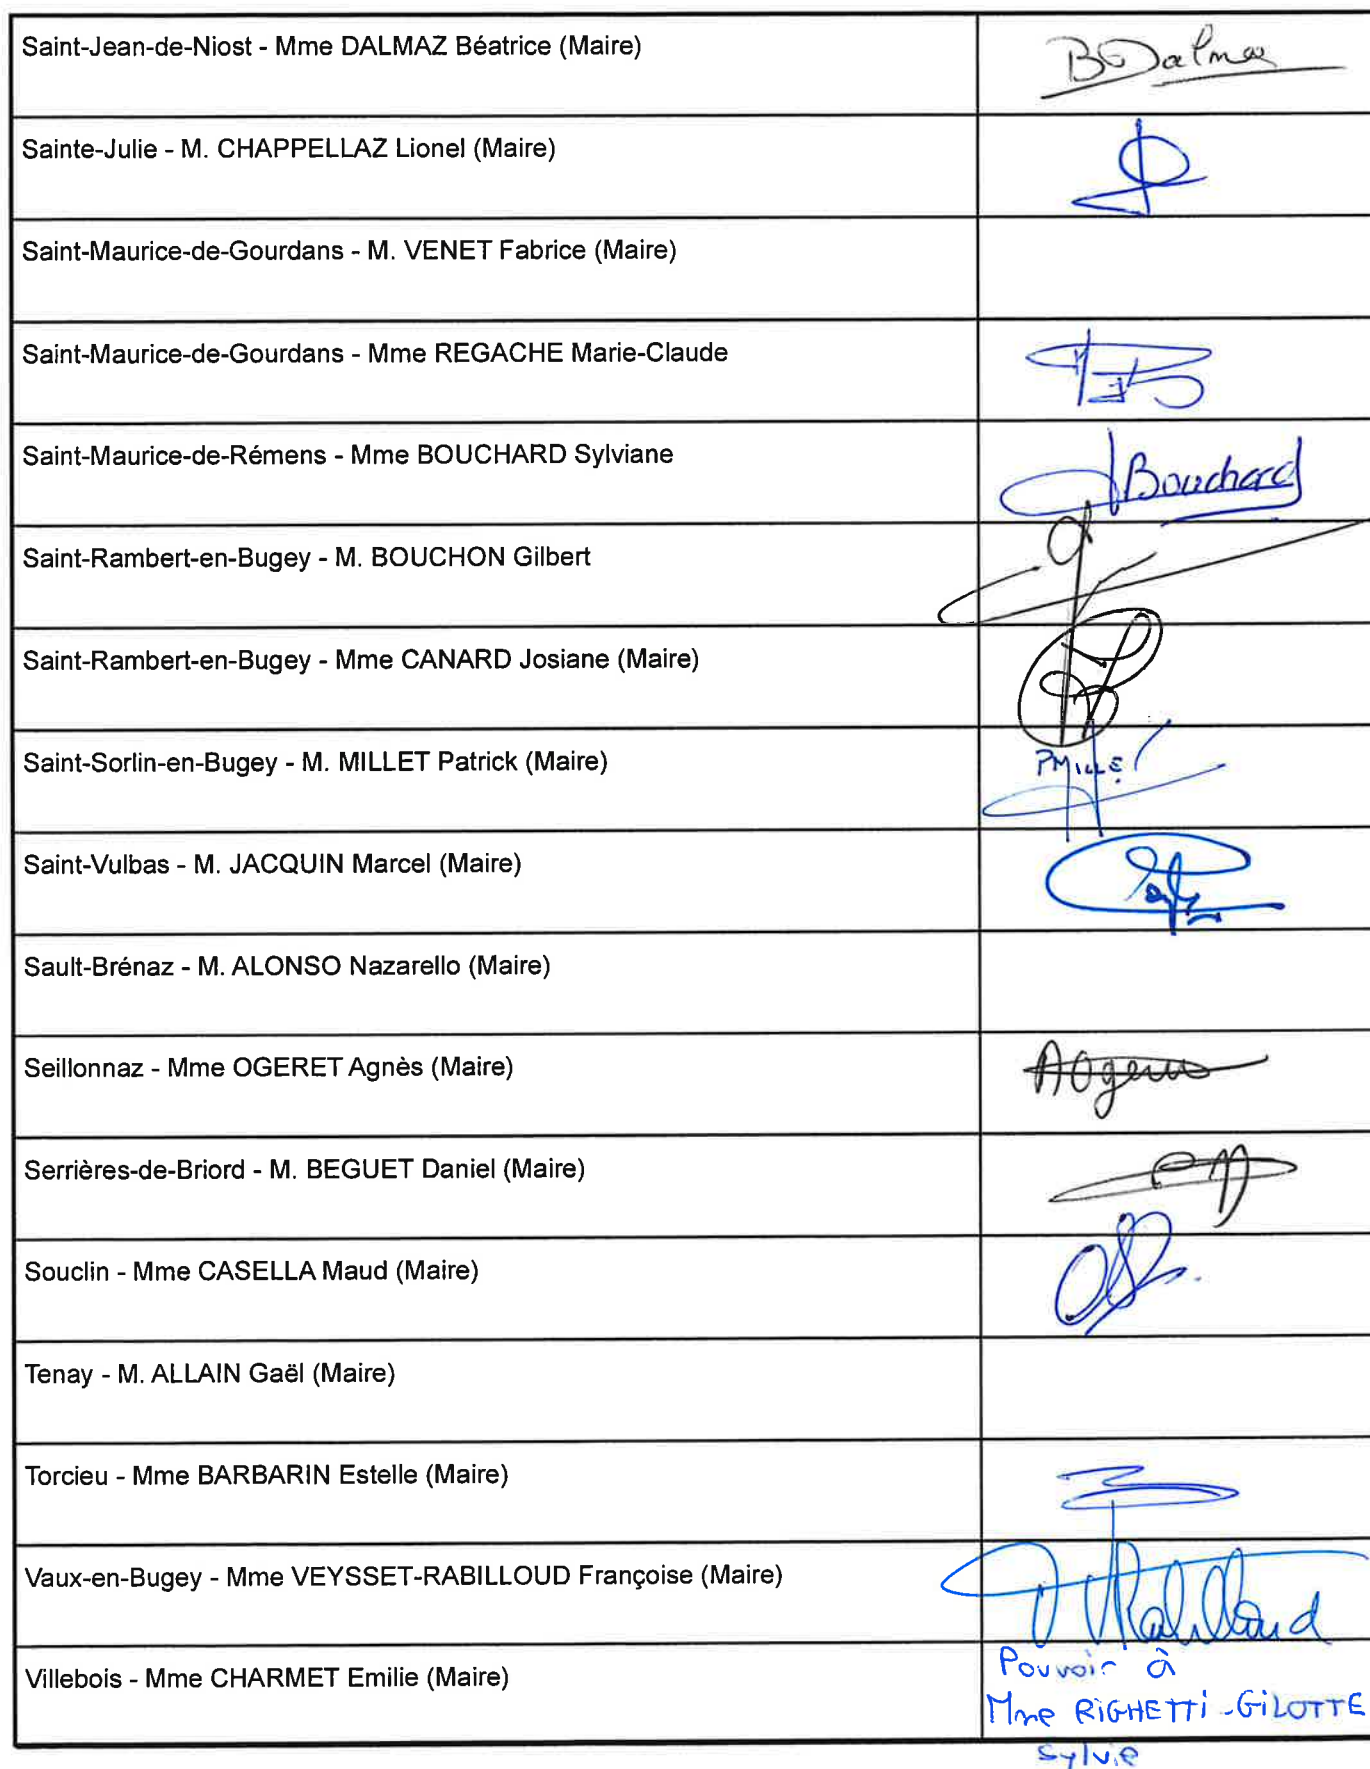 Saint-Jean-de-Niost - Mme DALMAZ Béatrice (Maire)
B Dalmaz
Sainte-Julie - M. CHAPPELLAZ Lionel (Maire)
Saint-Maurice-de-Gourdans - M. VENET Fabrice (Maire)
Saint-Maurice-de-Gourdans - Mme REGACHE Marie-Claude
Saint-Maurice-de-Rémens - Mme BOUCHARD Sylviane
Bouchard
Saint-Rambert-en-Bugey - M. BOUCHON Gilbert
Saint-Rambert-en-Bugey - Mme CANARD Josiane (Maire)
Saint-Sorlin-en-Bugey - M. MILLET Patrick (Maire)
PMILLET
Saint-Vulbas - M. JACQUIN Marcel (Maire)
Sault-Brénaz - M. ALONSO Nazarello (Maire)
Seillonnaz - Mme OGERET Agnès (Maire)
Serrières-de-Briord - M. BEGUET Daniel (Maire)
Souclin - Mme CASELLA Maud (Maire)
Tenay - M. ALLAIN Gaël (Maire)
Torcieu - Mme BARBARIN Estelle (Maire)
Vaux-en-Bugey - Mme VEYSSET-RABILLOUD Françoise (Maire)
Villebois - Mme CHARMET Emilie (Maire)
Pouvoir à
Mme RIGHETTI-GILOTTE
Sylvie